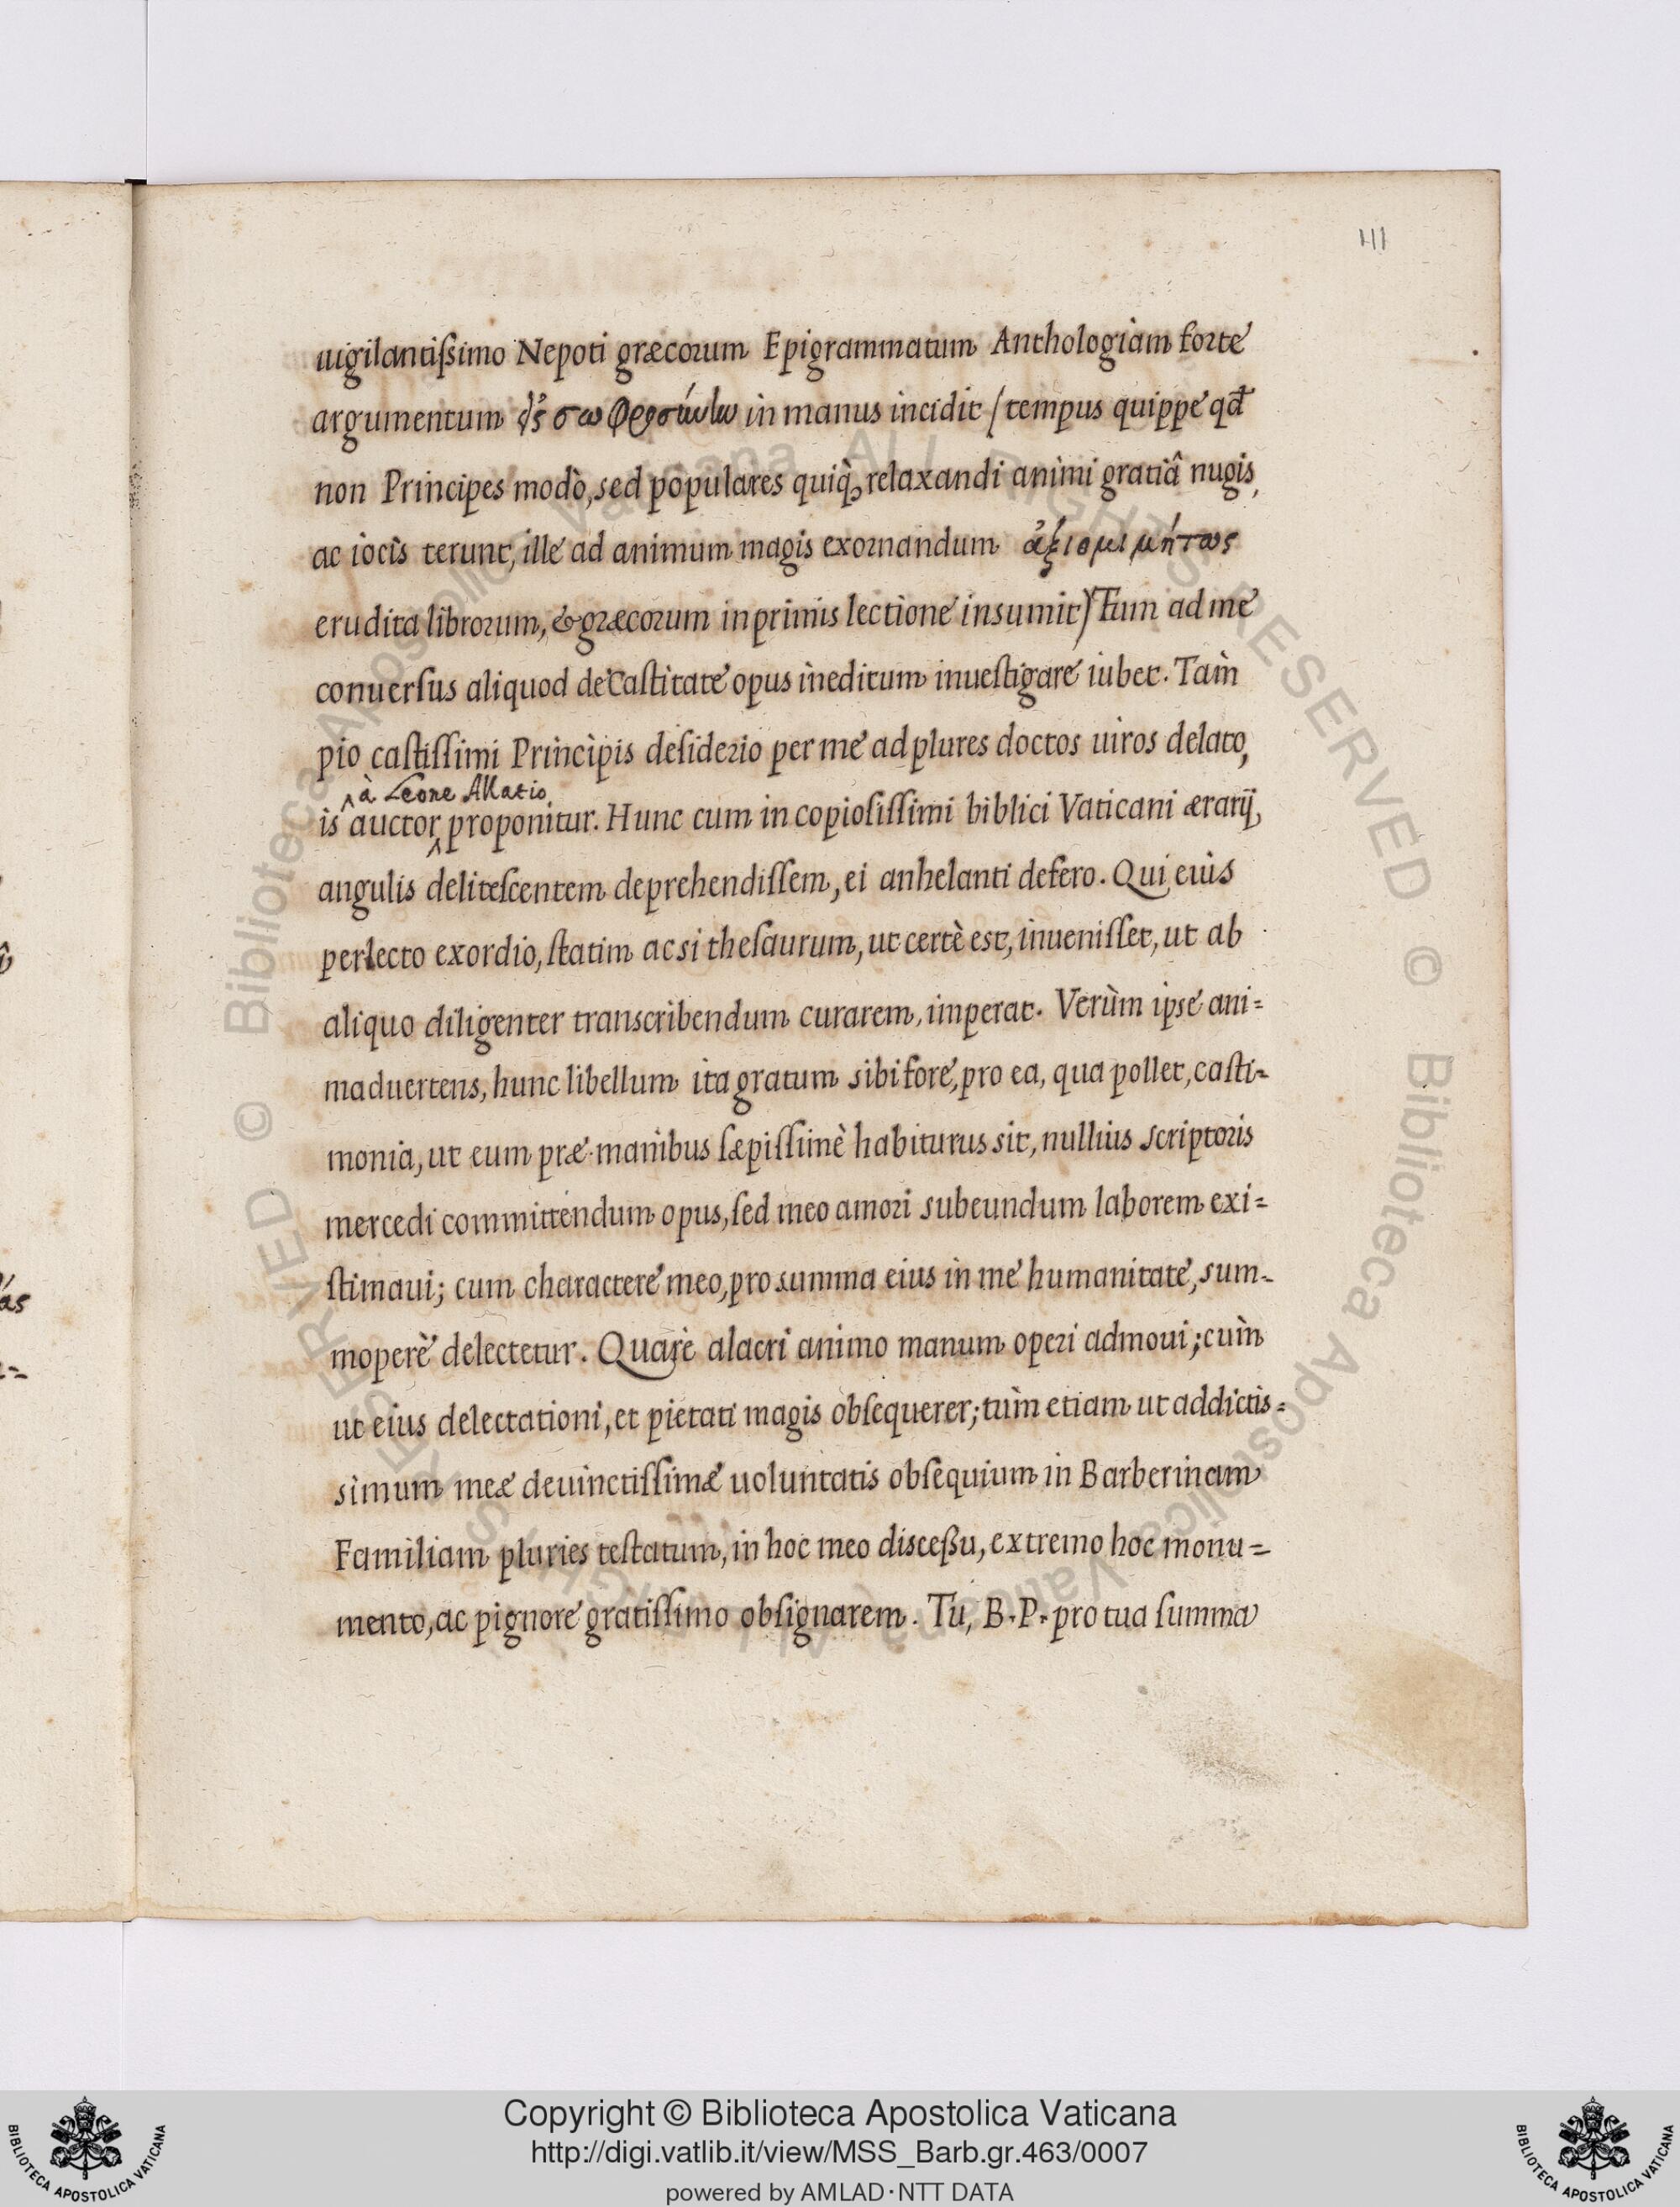 III
uigilantißimo Nepoti græcorum Epigrammatum Anthologiam forte
argumentum in manus incidit (tempus quippe qđ
non Principes modò, sed populares quiq; relaxandi animi gratiâ nugis,
ac iocis terunt, ille ad animum magis exornandum ἀξιομιμήτως
erudita librorum, & græcorum in primis lectione insumit) Tum ad me
conuerſus aliquod de Caſtitate opus ineditum inueſtigare iubet. Tam
pio caſtiſſimi Principis deſiderio per me ad plures doctos uiros delato,
à Leone Allatio
is auctor proponitur. Hunc cum in copioſiſſimi biblici Vaticani ærarij,
angulis deliteſcentem deprehendiſſem, ei anhelanti defero. Qui eius
perlecto exordio, ſtatim ac si theſaurum, ut certè est, inueniſſet, ut ab
aliquo diligenter transcribendum curarem, imperat. Verùm ipse ani=
maduertens, hunc libellum ita gratum sibi fore, pro ea, qua pollet, caſti=
monia, ut eum præ manibus ſæpiſſimè habiturus sit, nullius scriptoris
mercedi committendum opus, ſed meo amori subeundum laborem exi=
ſtimaui; cum charactere meo, pro summa eius in me humanitate, sum=
moperè delectetur. Quare alacri animo manum operi admoui; cùm
ut eius delectationi, et pietati magis obſequerer; tùm etiam ut addictis=
simum meæ deuinctiſſimæ uoluntatis obſequium in Barberinam
Familiam pluries teſtatum, in hoc meo disceßu, extremo hoc monu=
mento, ac pignore gratiſſimo obſignarem. Tu, B. P. pro tua ſumma
Copyright © Biblioteca Apostolica Vaticana
http://digi.vatlib.it/view/MSS_Barb.gr.463/0007
powered by AMLAD·NTT DATA
BIBLIOTECA APOSTOLICA VATICANA
BIBLIOTECA APOSTOLICA VATICANA